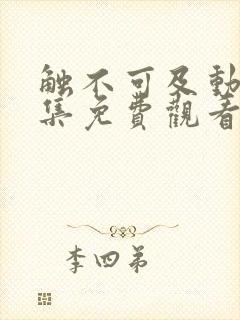 触不可及動
集免費觀看
李四弟